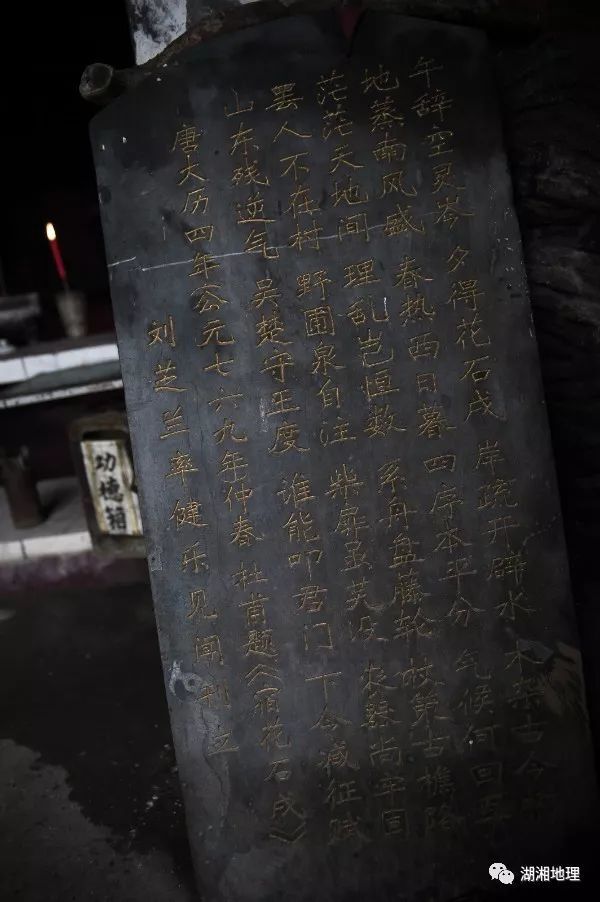 午辞空灵岑 夕得花石戍 岸疏开辟水 木杂古今
地蒸南风盛 春热西日暮 四序本平分 气候何回
茫茫天地间 理乱岂恒数 系舟盘藤轮 杖策古樵路
罢人不在村 野圃泉自注 柴扉虽芜没 农器尚牢固
山东残逆气 吴楚守王度 谁能叩君门 下令减征赋
唐大历四年公元七六九年仲春 杜甫题《宿花石戍》
刘芝兰率健乐见闻之
功德箱
湖湘地理